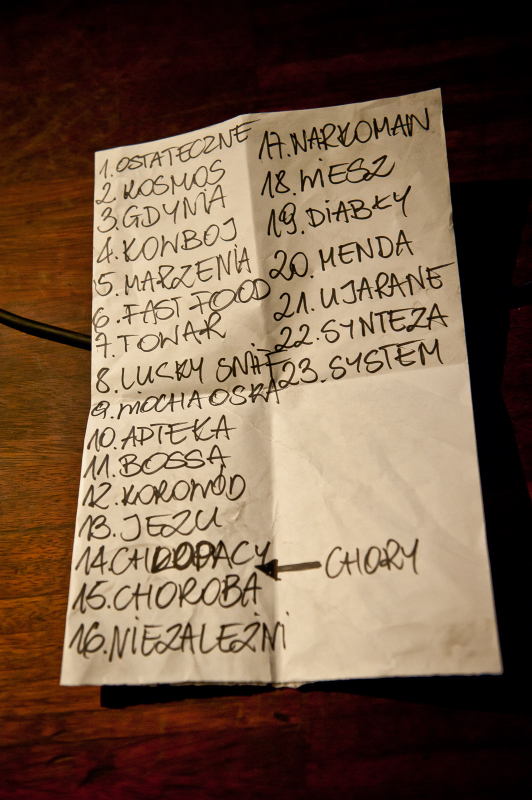 1. OSTATECZNE
2. KOSMOS
3. GDYNIA
4. KOWBOJ
5. MARZENIA
6. FAST FOOD
7. TOWAR
8. LUSKY SNIFF
9. MOCHA OSRA
10. APTEKA
11. BOSSA
12. KOROWÓD
13. JEZU
14. CHŁOPACY ← CHORY
15. CHOROBA
16. NIEZALEŻNI
17. NARKOMAN
18. WIESZ
19. DIABŁY
20. MENDA
21. UJARANE
22. SYNTEZA
23. SYSTEM